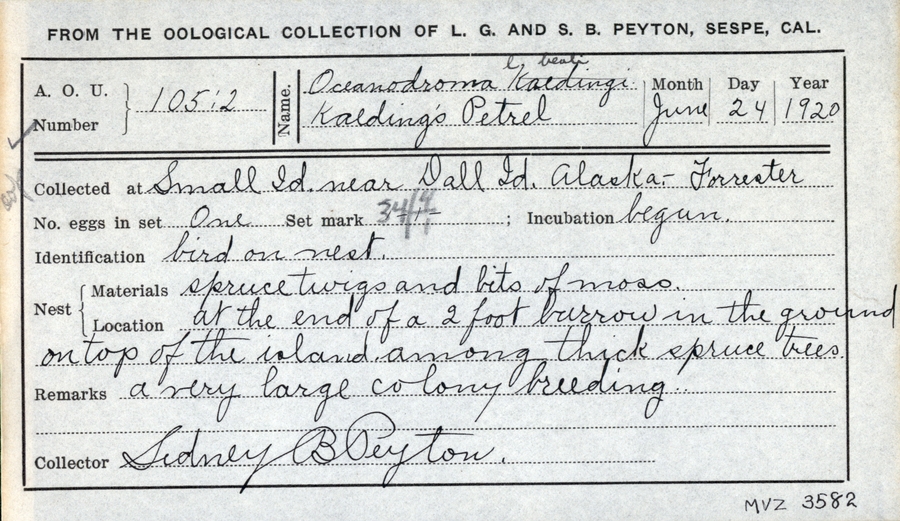 FROM THE OOLOGICAL COLLECTION OF L. G. AND S. B. PEYTON, SESPE, CAL.
A. O. U. Number 105:2 Name. Oceanodroma Kaedingi l. beali
Kaeding's Petrel
Month Day Year
June 24 1920
Collected at Small Id. near Dall Id. Alaska- Forrester
No. eggs in set One Set mark 34/1 ; Incubation begun.
Identification bird on nest.
Nest Materials spruce twigs and bits of moss.
Location at the end of a 2 foot burrow in the ground
on top of the island among thick spruce trees.
Remarks a very large colony breeding..
Collector Sidney B Peyton.
MVZ 3582